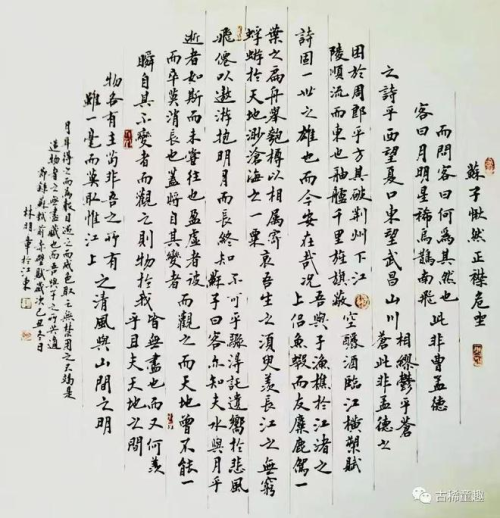 蘇子愀然正襟危坐
而問客曰何為其然也
客曰月明星稀烏鵲南飛
此非曹孟德
之詩乎西望夏口東望武昌山川
相繆鬱乎蒼
蒼此非孟德之
困於周郎乎方其破荊州下江
陵順流而東也舳艫千里旌旗蔽
空釃酒臨江橫槊賦
詩固一世之雄也而今安在哉況
吾與子漁樵於江渚之
上侶魚蝦而友麋鹿駕一
葉之扁舟舉匏樽以相屬寄
蜉蝣於天地渺滄海之一粟
哀吾生之須臾羨長江之無窮
飛僊以遨游抱明月而長終知
不可乎驟得託遺響於悲風
蘇子曰客亦知夫水與月乎
逝者如斯而未嘗往也盈虛者彼
而卒莫消長也蓋將自其變者
而觀之而天地曾不能一
瞬自其不變者而觀之則物於我
皆無盡也而又何羨
乎且夫天地之間
物各有主苟非吾之所有
雖一毫而莫取惟江上
之清風與山間之明
月耳得之而為聲目遇之而成色取之無禁用之不竭是
造物者之無盡藏也而吾與子之所共適
節錄蘇軾前赤壁賦歲次己丑冬日
古稀童趣